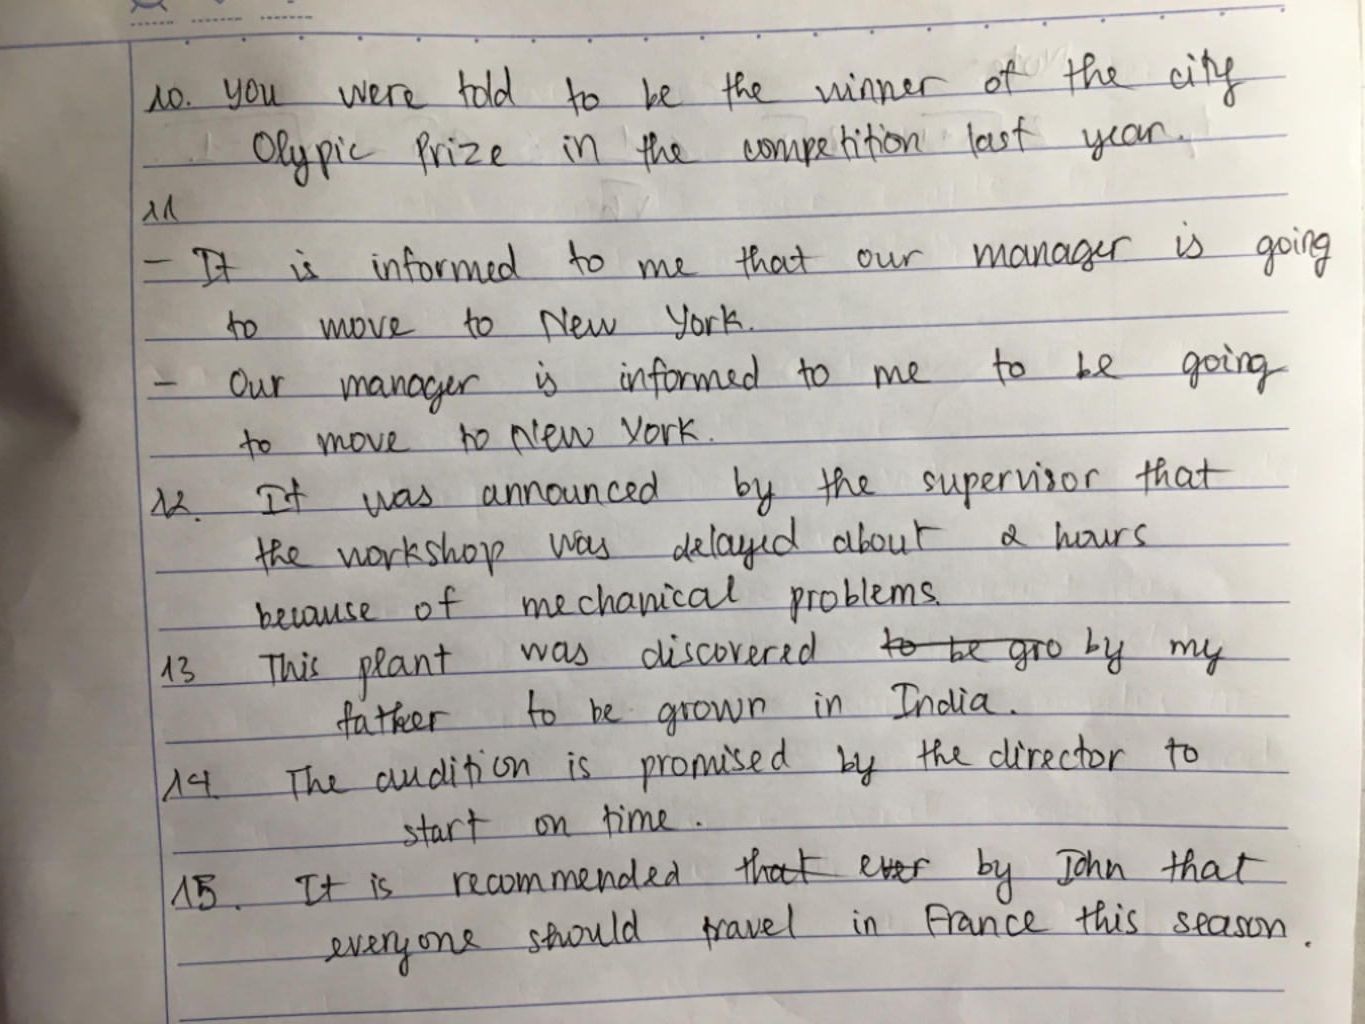 10. you were told to be the winner of the city
Olypic Prize in the competition last year.
11
- It is informed to me that our manager is going
to move to New York.
- Our manager is informed to me to be going
to move to New York.
12. It was announced by the supervisor that
the workshop was delayed about 2 hours
because of mechanical problems.
13 This plant was discovered to be gro by my
father to be grown in India.
14. The audition is promised by the director to
start on time.
15. It is recommended that ever by John that
everyone should travel in France this season.